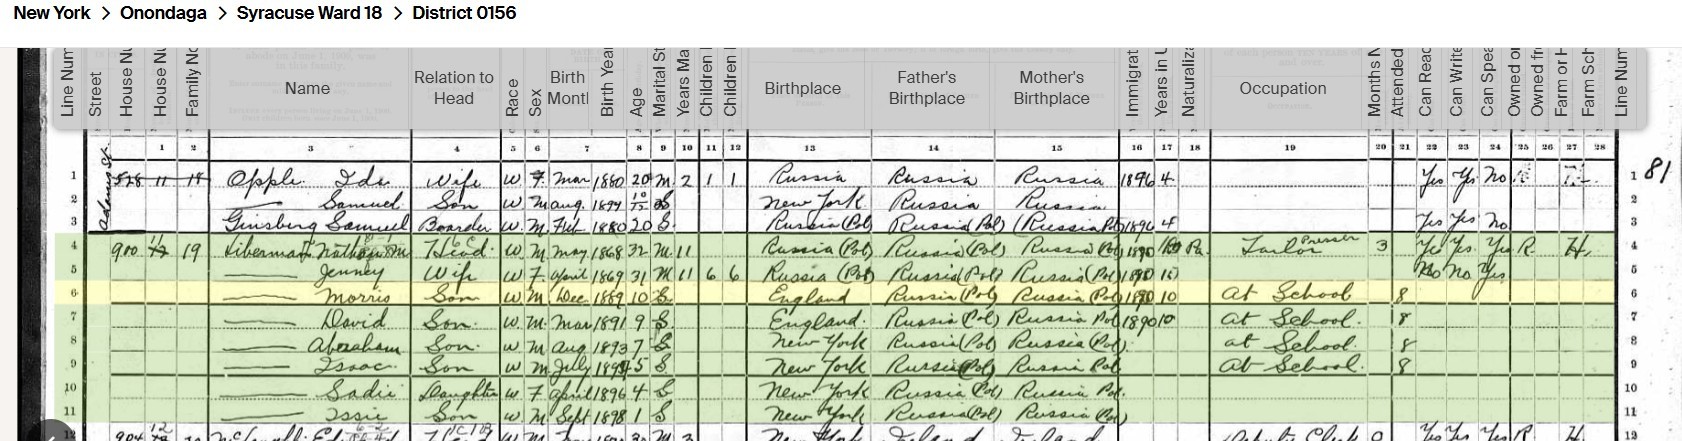 New York > Onondaga > Syracuse Ward 18 > District 0156
Line Num Street House Nu House Nu Family No Name Relation to Head Race Sex Birth Month Birth Year Age Marital St Years Ma Children Children Birthplace Father's Birthplace Mother's Birthplace Immigrat Years in U Naturaliza Occupation Months N Attended Can Read Can Write Can Spea Owned or Owned fr Farm or H Farm Sch Line Num
1 2 3 4 5 6 7 8 9 10 11 12 13 14 15 16 17 18 19 20 21 22 23 24 25 26 27 28
Adams St.
1 528 11 18 Opple Ida Wife W F. Mar 1880 20 M 2 1 1 Russia Russia Russia 1896 4 Yes Yes No R 1 81
2 Samuel Son W M aug. 1899 10/12 S New York Russia Russia 2
3 Ginsberg Samuel Boarder W. M. Feb 1880 20 S. Russia (Pol) Russia (Pol) (Russia Pol) 1896 4 Yes Yes No. 3
4 900 19 Liberman Head W M May 1868 32 M 11 Russia (Pol) Russia (Pol) Russia (Pol) 1890 10 Pa. Tailor Presser 3 Yes Yes Yes R H. 4
5 Jenney Wife W F. April 1869 31 M 11 6 6 Russia (Pol) Russia (Pol) Russia (Pol) 1890 10 No No Yes 5
6 Morris Son W M Dec 1889 10 S. England Russia (Pol) Russia (Pol) 1890 10 At School 8 6
7 David Son. W M. Mar 1891 9 S. England. Russia (Pol) Russia Pol 1890 10 at School. 8 7
8 Abraham Son. W M Aug 1893 7 S New York Russia (Pol) Russia (Pol). at School. 8 8
9 Isaac Son W M July 5 S New York Russia (Pol) Russia Pol At School. 8 9
10 Sadie Daughter W F April 1896 4 S New York Russia (Pol) Russia Pol. 10
11 Issie Son W M Sept 1898 1 S New York Russia (Pol) Russia (Pol) 11
12 904 12 New York Ireland Ireland Yes Yes Yes R H. 12